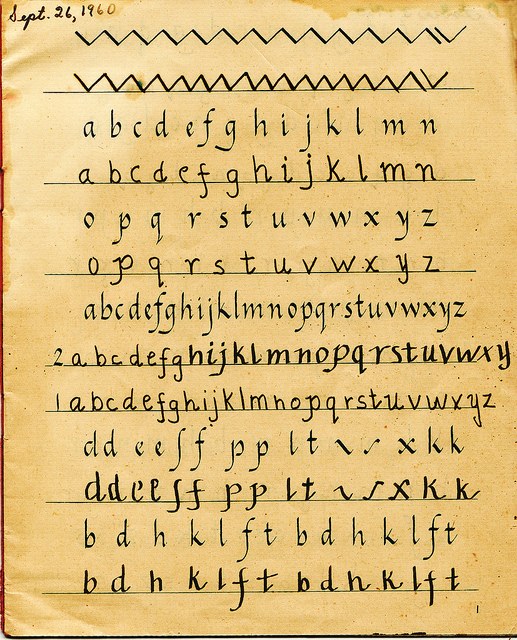 Sept. 26, 1960
a b c d e f g h i j k l m n
a b c d e f g h i j k l m n
o p q r s t u v w x y z
o p q r s t u v w x y z
abcdefghijklmnopqrstuvwxyz
2 a b c d e f g h i j k l m n o p q r s t u v w x y
1 a b c d e f g h i j k l m n o p q r s t u v w x y z
d d e e ʃ f p p l t x k k
d d e e ʃ f p p l t x k k
b d h k l f t b d h k l f t
b d h k l f t b d h k l f t
1